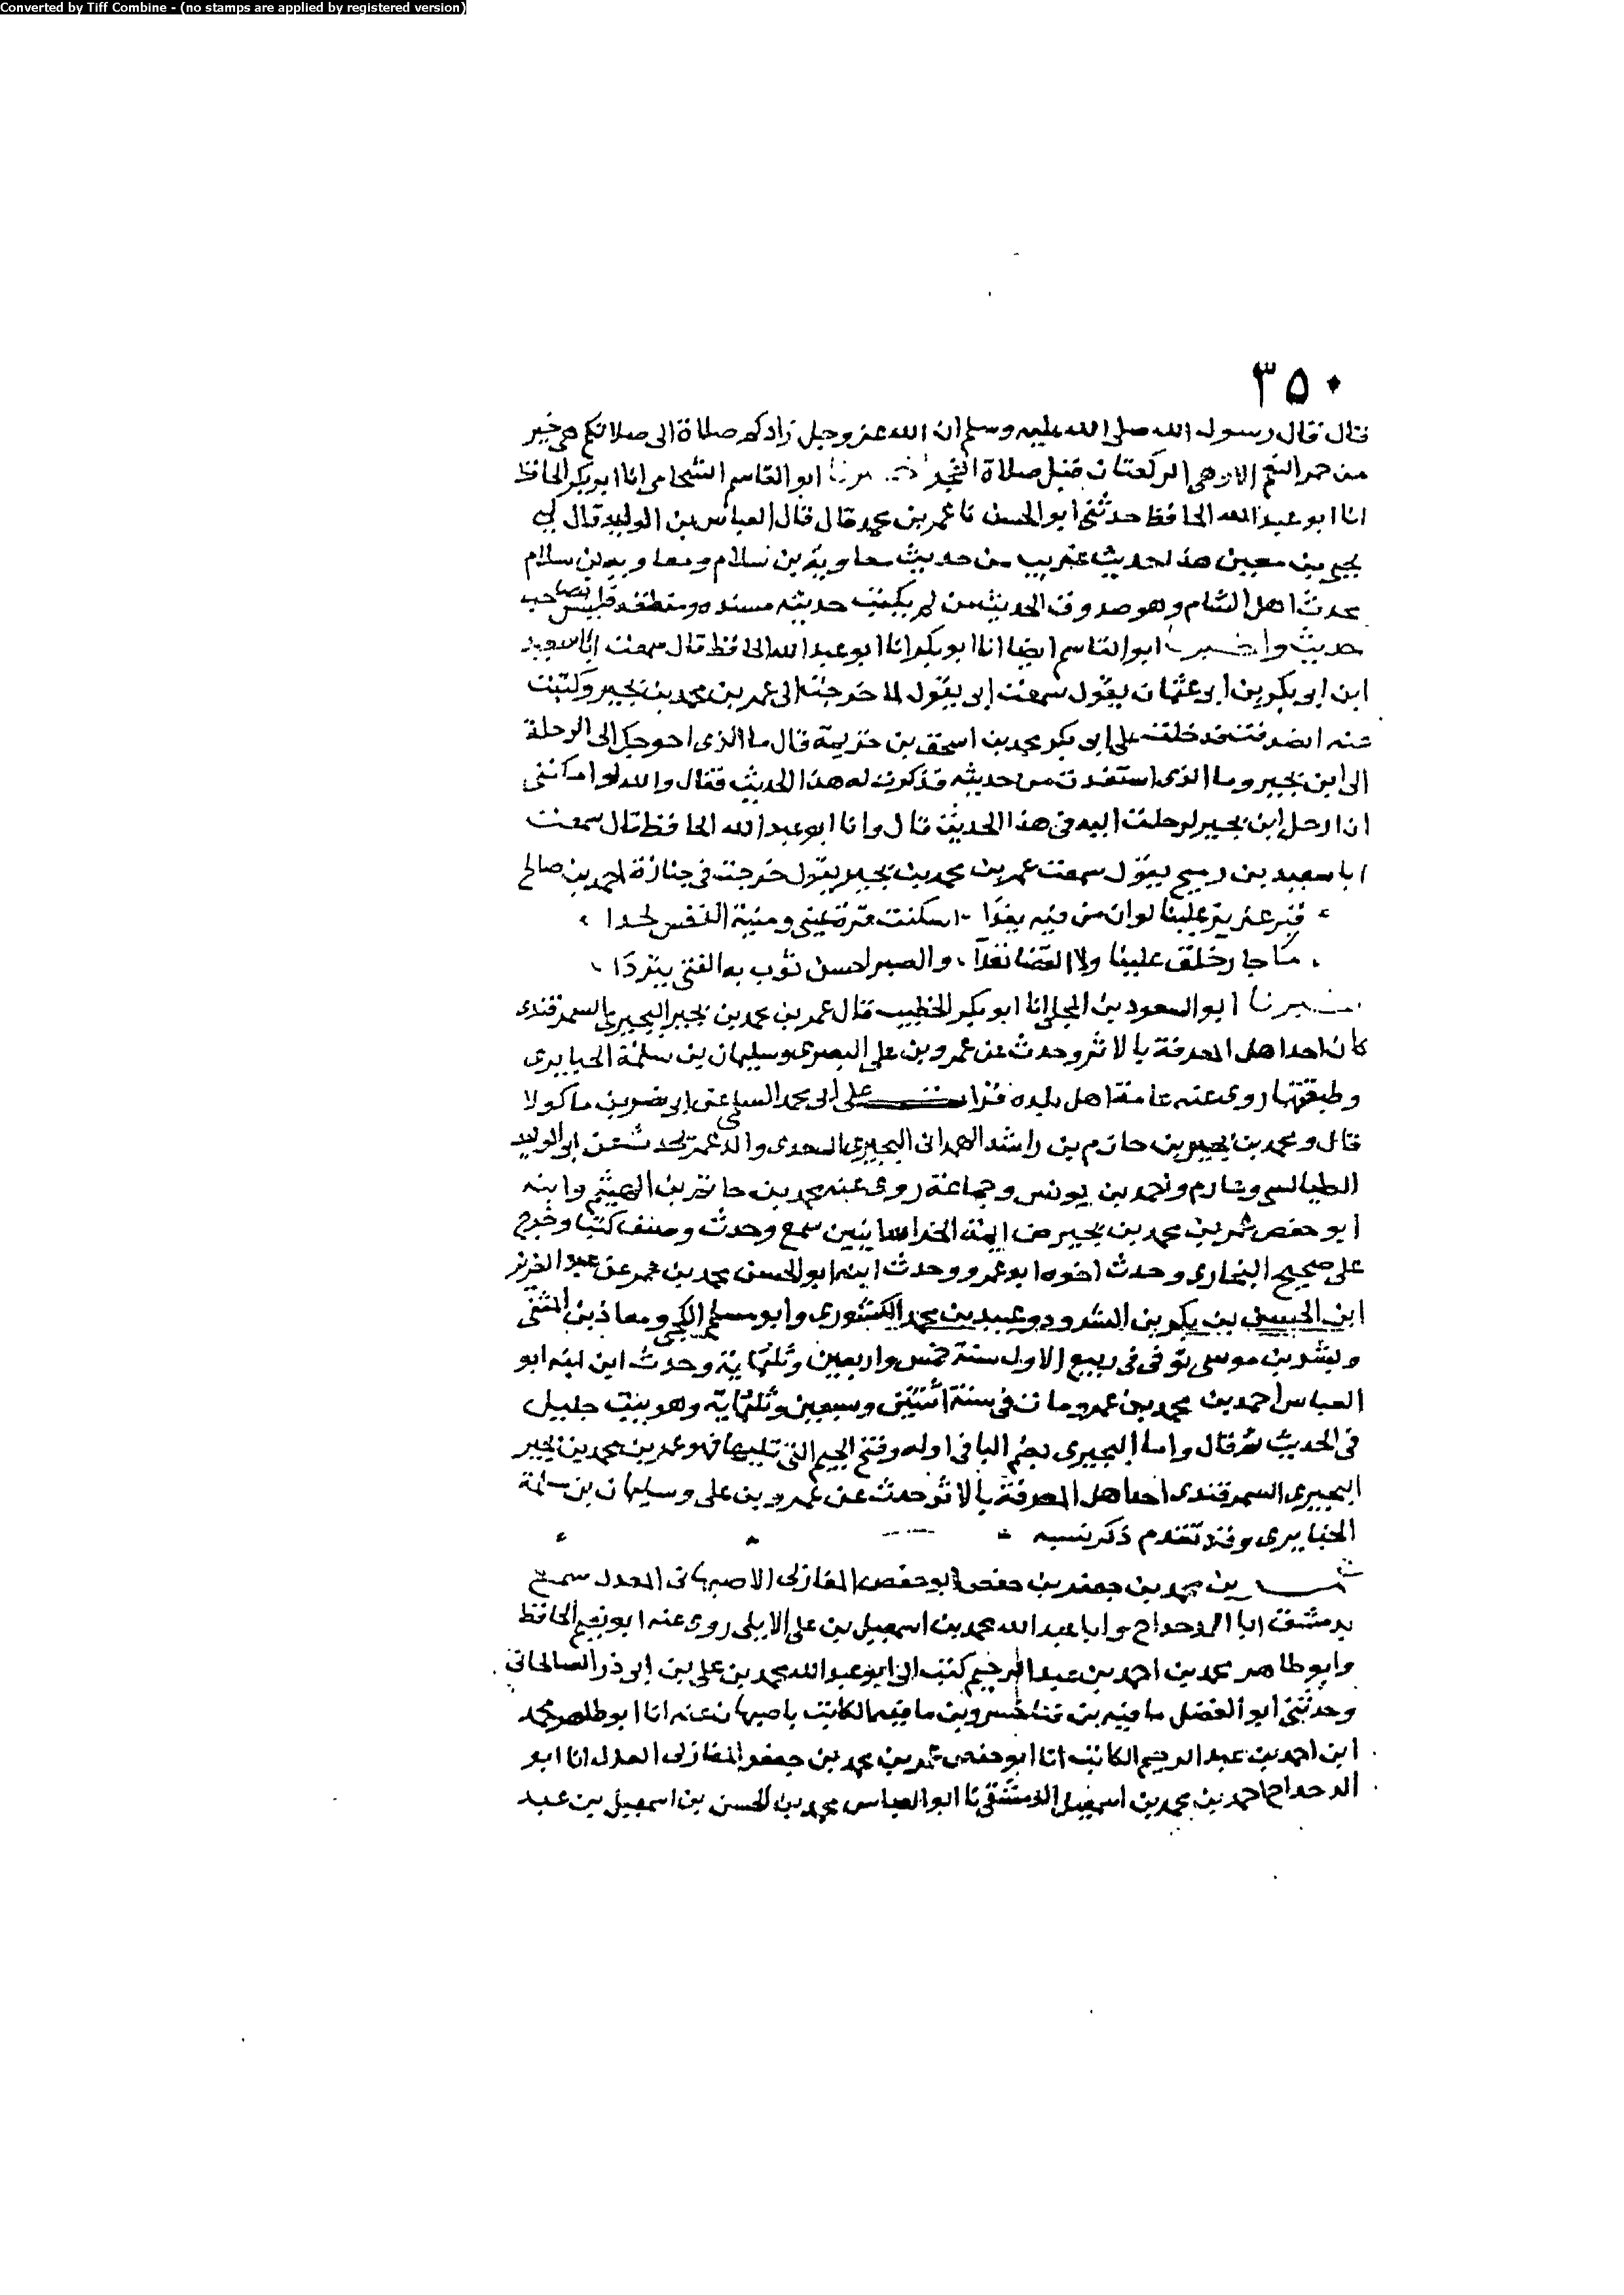 Converted by Tiff Combine - (no stamps are applied by registered version)
٣٥٠
قال قال رسول الله صلى الله عليه وسلم ان الله عز وجل زادكم صلاة الى صلاتكم هي خير
من حمر النعم الا وهي الركعتان قبل صلاة الفجر ابو القاسم الشحامي انا ابو بكر الحافظ
انا ابو عبد الله الحافظ حدثني ابو الحسن نا عمر بن محمد قال قال العباس بن الوليد قال لي
يحيى بن معين هذا حديث غريب من حديث معاوية بن سلام ومعاوية بن سلام
محدث اهل الشام وهو صدوق الحديث من لم يكتب حديثه مسنده ومنقطعه فليس بصاحب
حديث واخبرنا ابو القاسم ايضا انا ابو بكر انا ابو عبد الله الحافظ قال سمعت ابا سعيد
ابن ابي بكر بن ابي عثمان يقول سمعت ابي يقول لما خرجت الى عمر بن محمد بن بجير وكتبت
عنه انصرفت فدخلت على ابي بكر محمد بن اسحق بن خزيمة قال ما الذي احوجك الى الرحلة
الى ابن بجير وما الذي استفدت من حديثه فذكرت له هذا الحديث فقال والله لو امكنني
ان ارحل ابن بجير لرحلت اليه في هذا الحديث قال وانا ابو عبد الله الحافظ قال سمعت
ابا سعيد بن رميح يقول سمعت عمر بن محمد بن بجير يقول خرجت في جنازة احمد بن صالح
قبر عزيز علينا لو ان من فيه يفدا اسكنت قرة عيني ومنية النفس لحدا
ما جار خلق علينا ولا القضا تعدا والصبر احسن ثوب به الفتى يتردا
اخبرنا ابو السعود بن المجلي انا ابو بكر الخطيب قال عمر بن محمد بن بجير البجيري السمرقندي
كان احد اهل المعرفة بالاثر وحدث عن عمرو بن علي البصري وسليمان بن سلمة الخبايري
وطبقتهما روى عنه عامة اهل بلده قرات على ابي محمد السلمي عن ابي نصر بن ماكولا
قال ومحمد بن بجير بن حازم بن راشد الهمداني البجيري السعدي والد عمر حدث عن ابي الوليد
الطيالسي وعارم واحمد بن يونس وجماعة روى عنه محمد بن حاتم بن الهيثم وابنه
ابو حفص عمر بن محمد بن بجير من ايمة الخراسانيين سمع وحدث وصنف كتبا وخرج
على صحيح البخاري وحدث اخوه ابو عمرو وحدث ابنه ابو الحسن محمد بن عمر عن عبد العزيز
ابن الحسين بن بكر بن الشرود وعبيد بن محمد الكشوري وابو مسلم الكجي ومعاذ بن المثنى
وبشر بن موسى توفي في ربيع الاول سنة خمس واربعين وثلثماية وحدث ابن ابنه ابو
العباس احمد بن محمد بن عمر ومات في سنة اثنتين وسبعين وثلثماية وهو بيت جليل
في الحديث ثم قال واما البجيري بضم البا في اوله وفتح الجيم التي تليها فهو عمر بن محمد بن بجير
البجيري السمرقندي احد اهل المعرفة بالاثر حدث عن عمرو بن علي وسليمان بن سلمة
الخبايري وقد تقدم ذكر نسبه
عمر بن محمد بن جعفر بن حفص ابو حفص المغازلي الاصبهاني المعدل سمع
بدمشق ابا الدحداح وابا عبد الله محمد بن اسمعيل بن علي الايلي روى عنه ابو نعيم الحافظ
وابو طاهر محمد بن احمد بن عبد الرحيم كتب الي ابو عبد الله محمد بن علي بن ابي ذر الصالحاني
وحدثني ابو الفضل مافيه بن فناخسرو بن مافيه الكاتب باصبهان عنه انا ابو طاهر محمد
ابن احمد بن عبد الرحيم الكاتب انا ابو حفص عمر بن محمد بن جعفر المغازلي العدل انا ابو
الدحداح احمد بن محمد بن اسمعيل الدمشقي نا ابو العباس محمد بن الحسن بن اسمعيل بن عبد